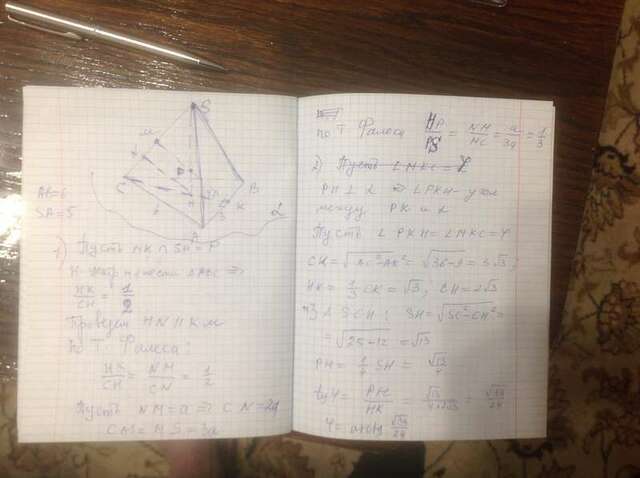 S
M
C
B
K
A
α
3
AB=6
SA=5
1) Пусть MK ∩ SH = P
H - центр тяжести △ABC ⇒
HK/CH = 1/2
Проведем HN ∥ KM
по Т. Фалеса:
HK/CH = NM/CN = 1/2
Пусть NM = a ⇒ CN = 2a
CM = MS = 3a
по Т. Фалеса HP/PS = NM/MC = a/3a = 1/3
2) Пусть ∠MKC = φ
PH ⊥ α ⇒ ∠PKH - угол
между PK и α
Пусть ∠PKH = ∠MKC = φ
= √36-9 = 3√3;
HK = 1/3 CK = √3, CH = 2√3
△SCH: SH = √SC²-CH² =
= √25-12 = √13
PH = 1/4 SH = √13/4
tgφ = PH/HK =